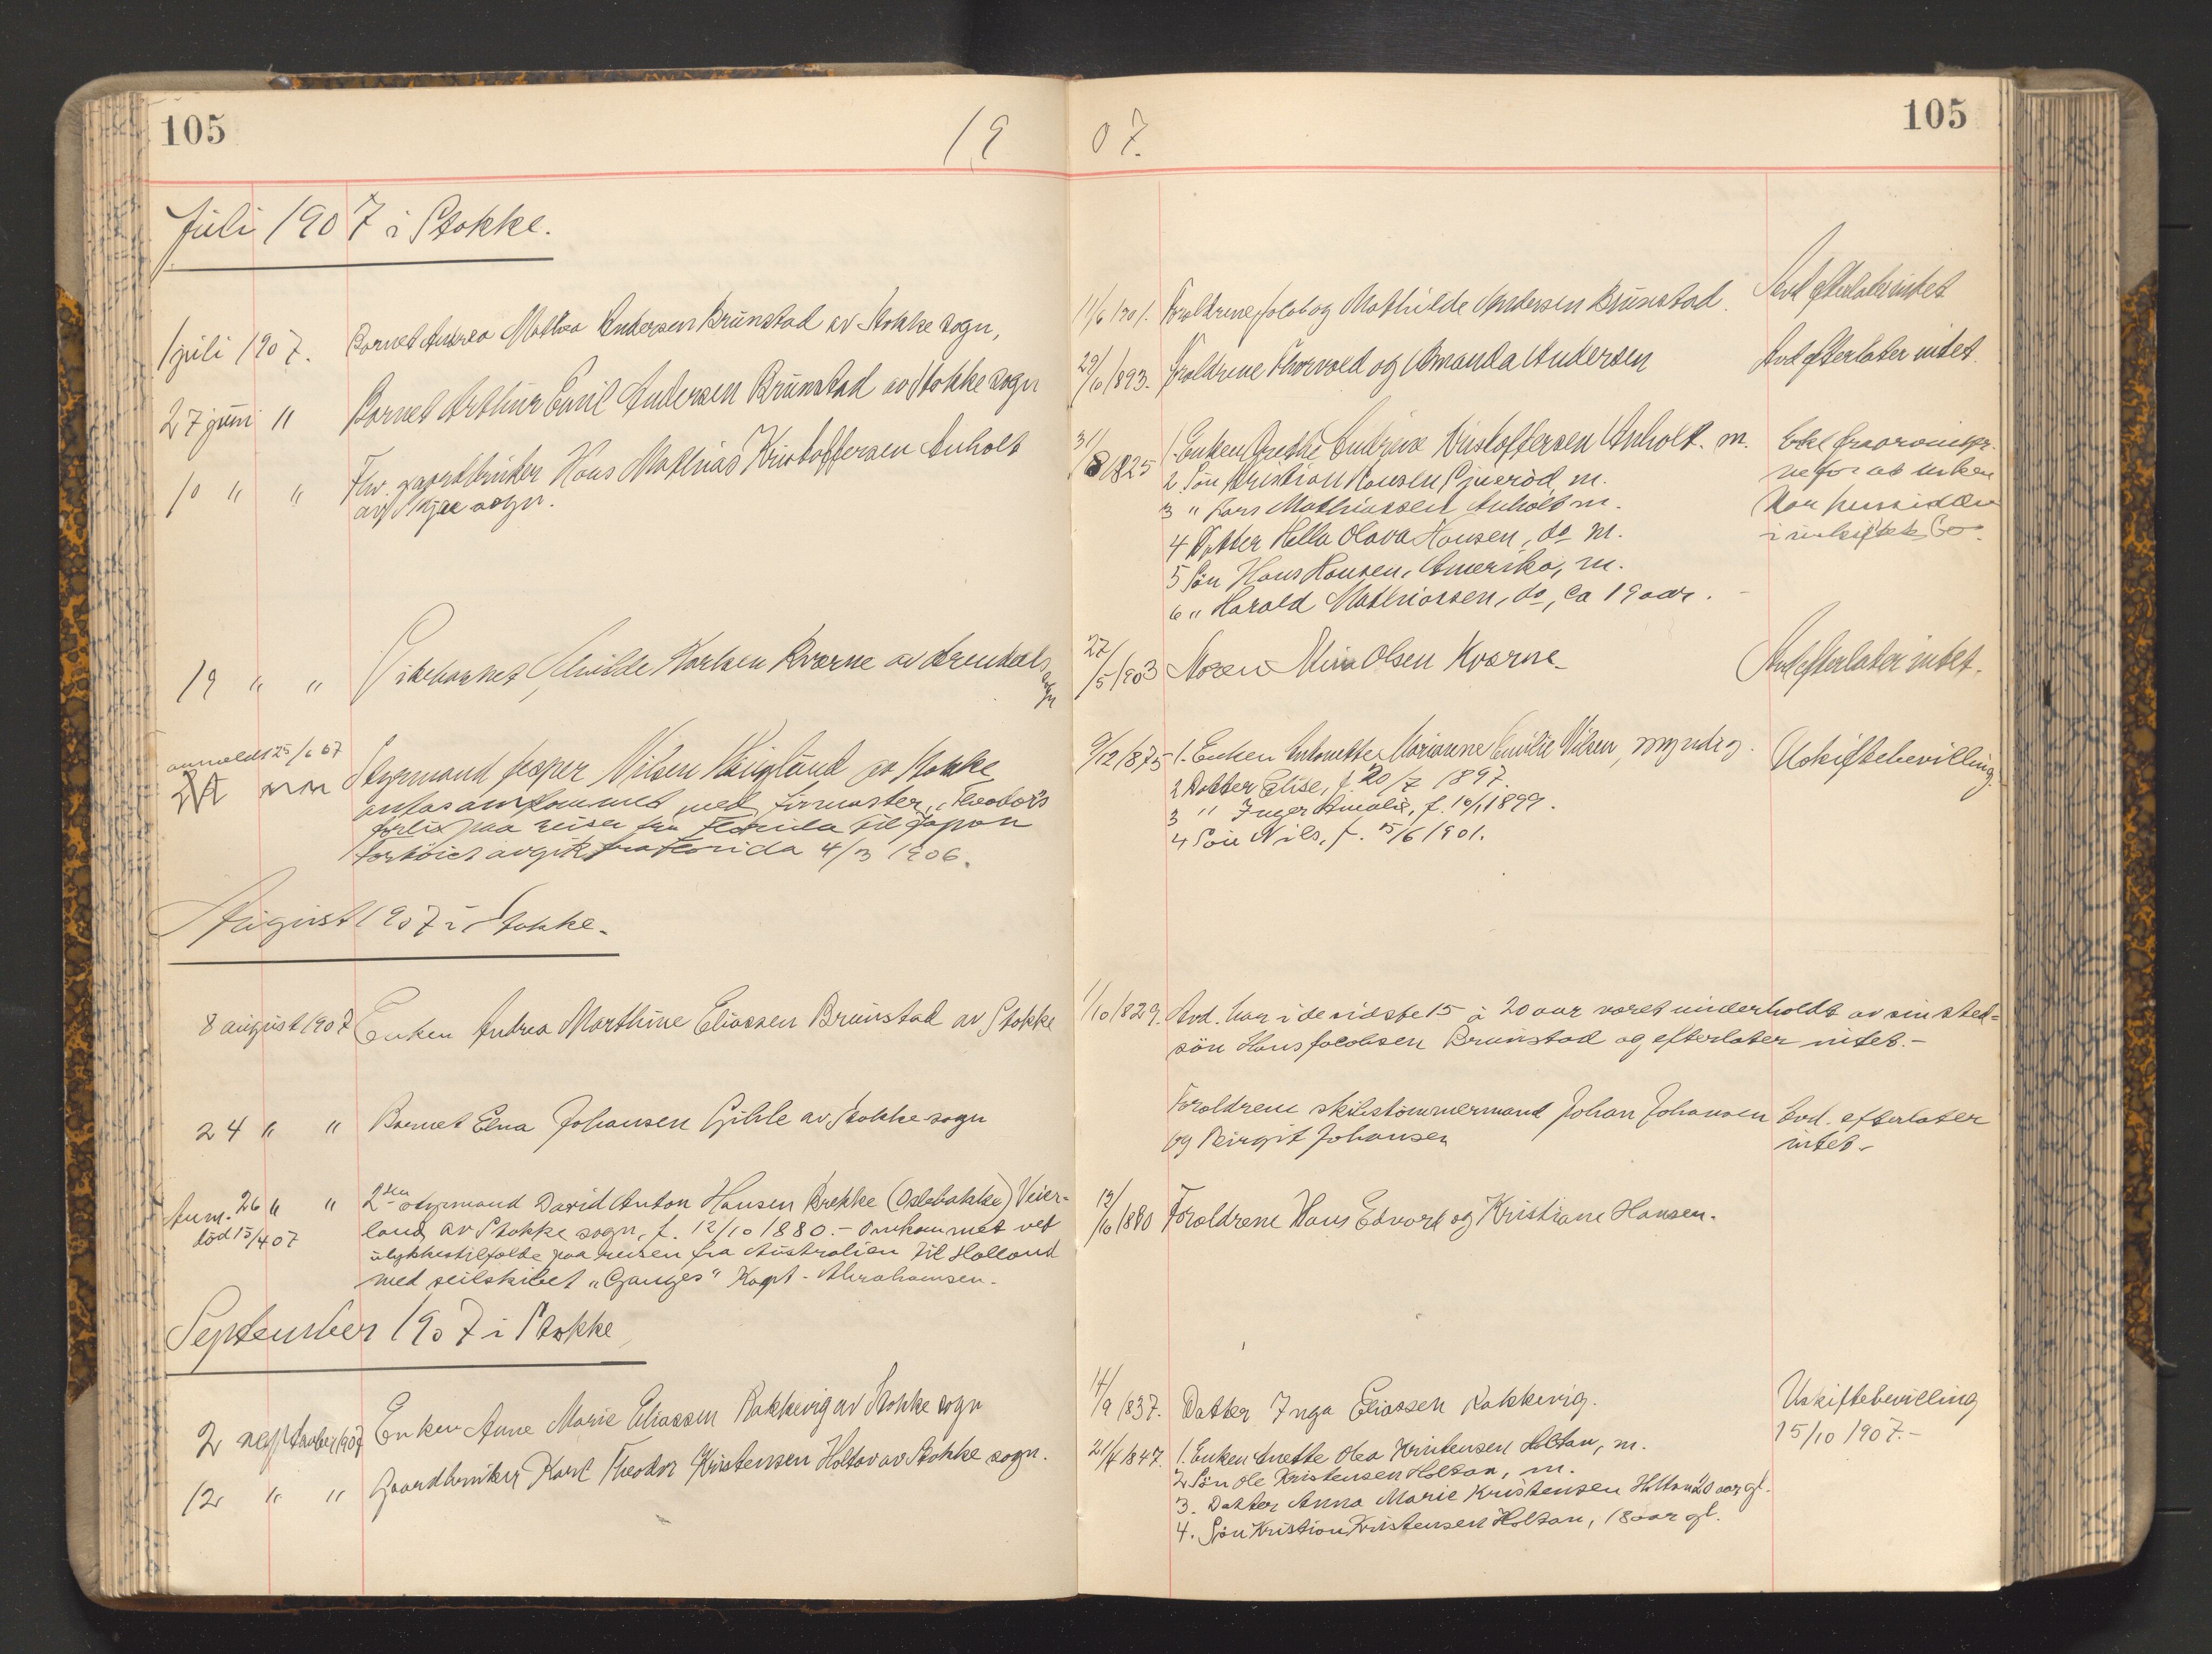 105
19
07.
105
Juli 1907 i Stokke.
1 juli 1907. Barnet Andrea Mathea Andersen Brunstad av Stokke sogn,
11/6 1901. Foraldrene Jakob og Mathilde Andersen Brunstad. Avd efterlater intet
27 juni " Barnet Arthur Emil Andersen Brunstad av Stokke sogn
29/10 1893. Foraldrene Thorvald og Amanda Andersen Avd efterlater intet.
10 " " Fhv. gaardbruker Hans Mathias Kristoffersen Anholt
av sogn.
31/8 1825 1. Enken Andrine Kristoffersen Anholt. m.
2. Søn Kristian Hansen m.
3 " Lars Mathiassen Anholt m.
4 Datter Hella Olava Hansen, do m.
5 Søn Hans Hansen, Amerika, m.
6 " Harald Mathiassen, do, ca 19 aar.
ne for at enken
har hensidden
i uskiftet bo
19 " " Pikebarnet Karlsen Kværne av Arendals sogn
27/5 1903 Moren Mina Olsen Kværne Avd efterlater intet.
anmeldt 25/6 07
Styrmand Jesper Nilsen Haugland av Stokke
antas omkommet med firmaster "Theodor"s
forlis paa reisen fra Florida til Japan
Fartöiet avgik fra Florida 4/3 1906.
9/12 1875 1. Enken Antonette Marianne Emilie Nilsen, myndig.
2 Datter Elise, f. 20/7 1897.
3 " Inger Amalie, f. 10/1 1899.
4 Søn Nils, f. 5/6 1901.
Uskiftebevilling.
August 1907 i Stokke.
8 august 1907 Enken Andrea Marthine Eliassen Brunstad av Stokke
1/10 1829. Avd. har i de sidste 15 à 20 aar været underholdt av sin sted=
søn Hans Jacobsen Brunstad og efterlater intet.-
24 " " Barnet Elna Johansen Gihle av Stokke sogn
Foraldrene skibstömmermand Johan Johansen
og Birgit Johansen
Avd. efterlater
intet-
Anm. 26 " " 2den styrmand David Anton Hansen Brekke (Oslebakke) Veier=
död 15/4 07 land av Stokke sogn, f. 12/10 1880.- Omkommet ved
ulykkestilfælde paa reisen fra Australien til Holland
med seilskibet "Ganges" Kapt. Abrahamsen.
12/10 1880 Foraldrene Hans Edvart og Kristiane Hansen.
September 1907 i Stokke
2 september 1907 Enken Anne Marie Eliassen Rakkevig av Stokke sogn
4/9 1837. Datter Inga Eliassen Rakkevig.
Uskiftebevilling
15/10 1907.-
12 " " Gaardbruker Karl Theodor Kristensen Holtan av Stokke sogn.
21/4 1847. 1. Enken Anette Olea Kristensen Holtan, m.
2 Søn Ole Kristensen Holtan, m.
3. Datter Anna Marie Kristensen Holtan 20 aar gl.
4. Søn Kristian Kristensen Holtan, 18 aar gl.